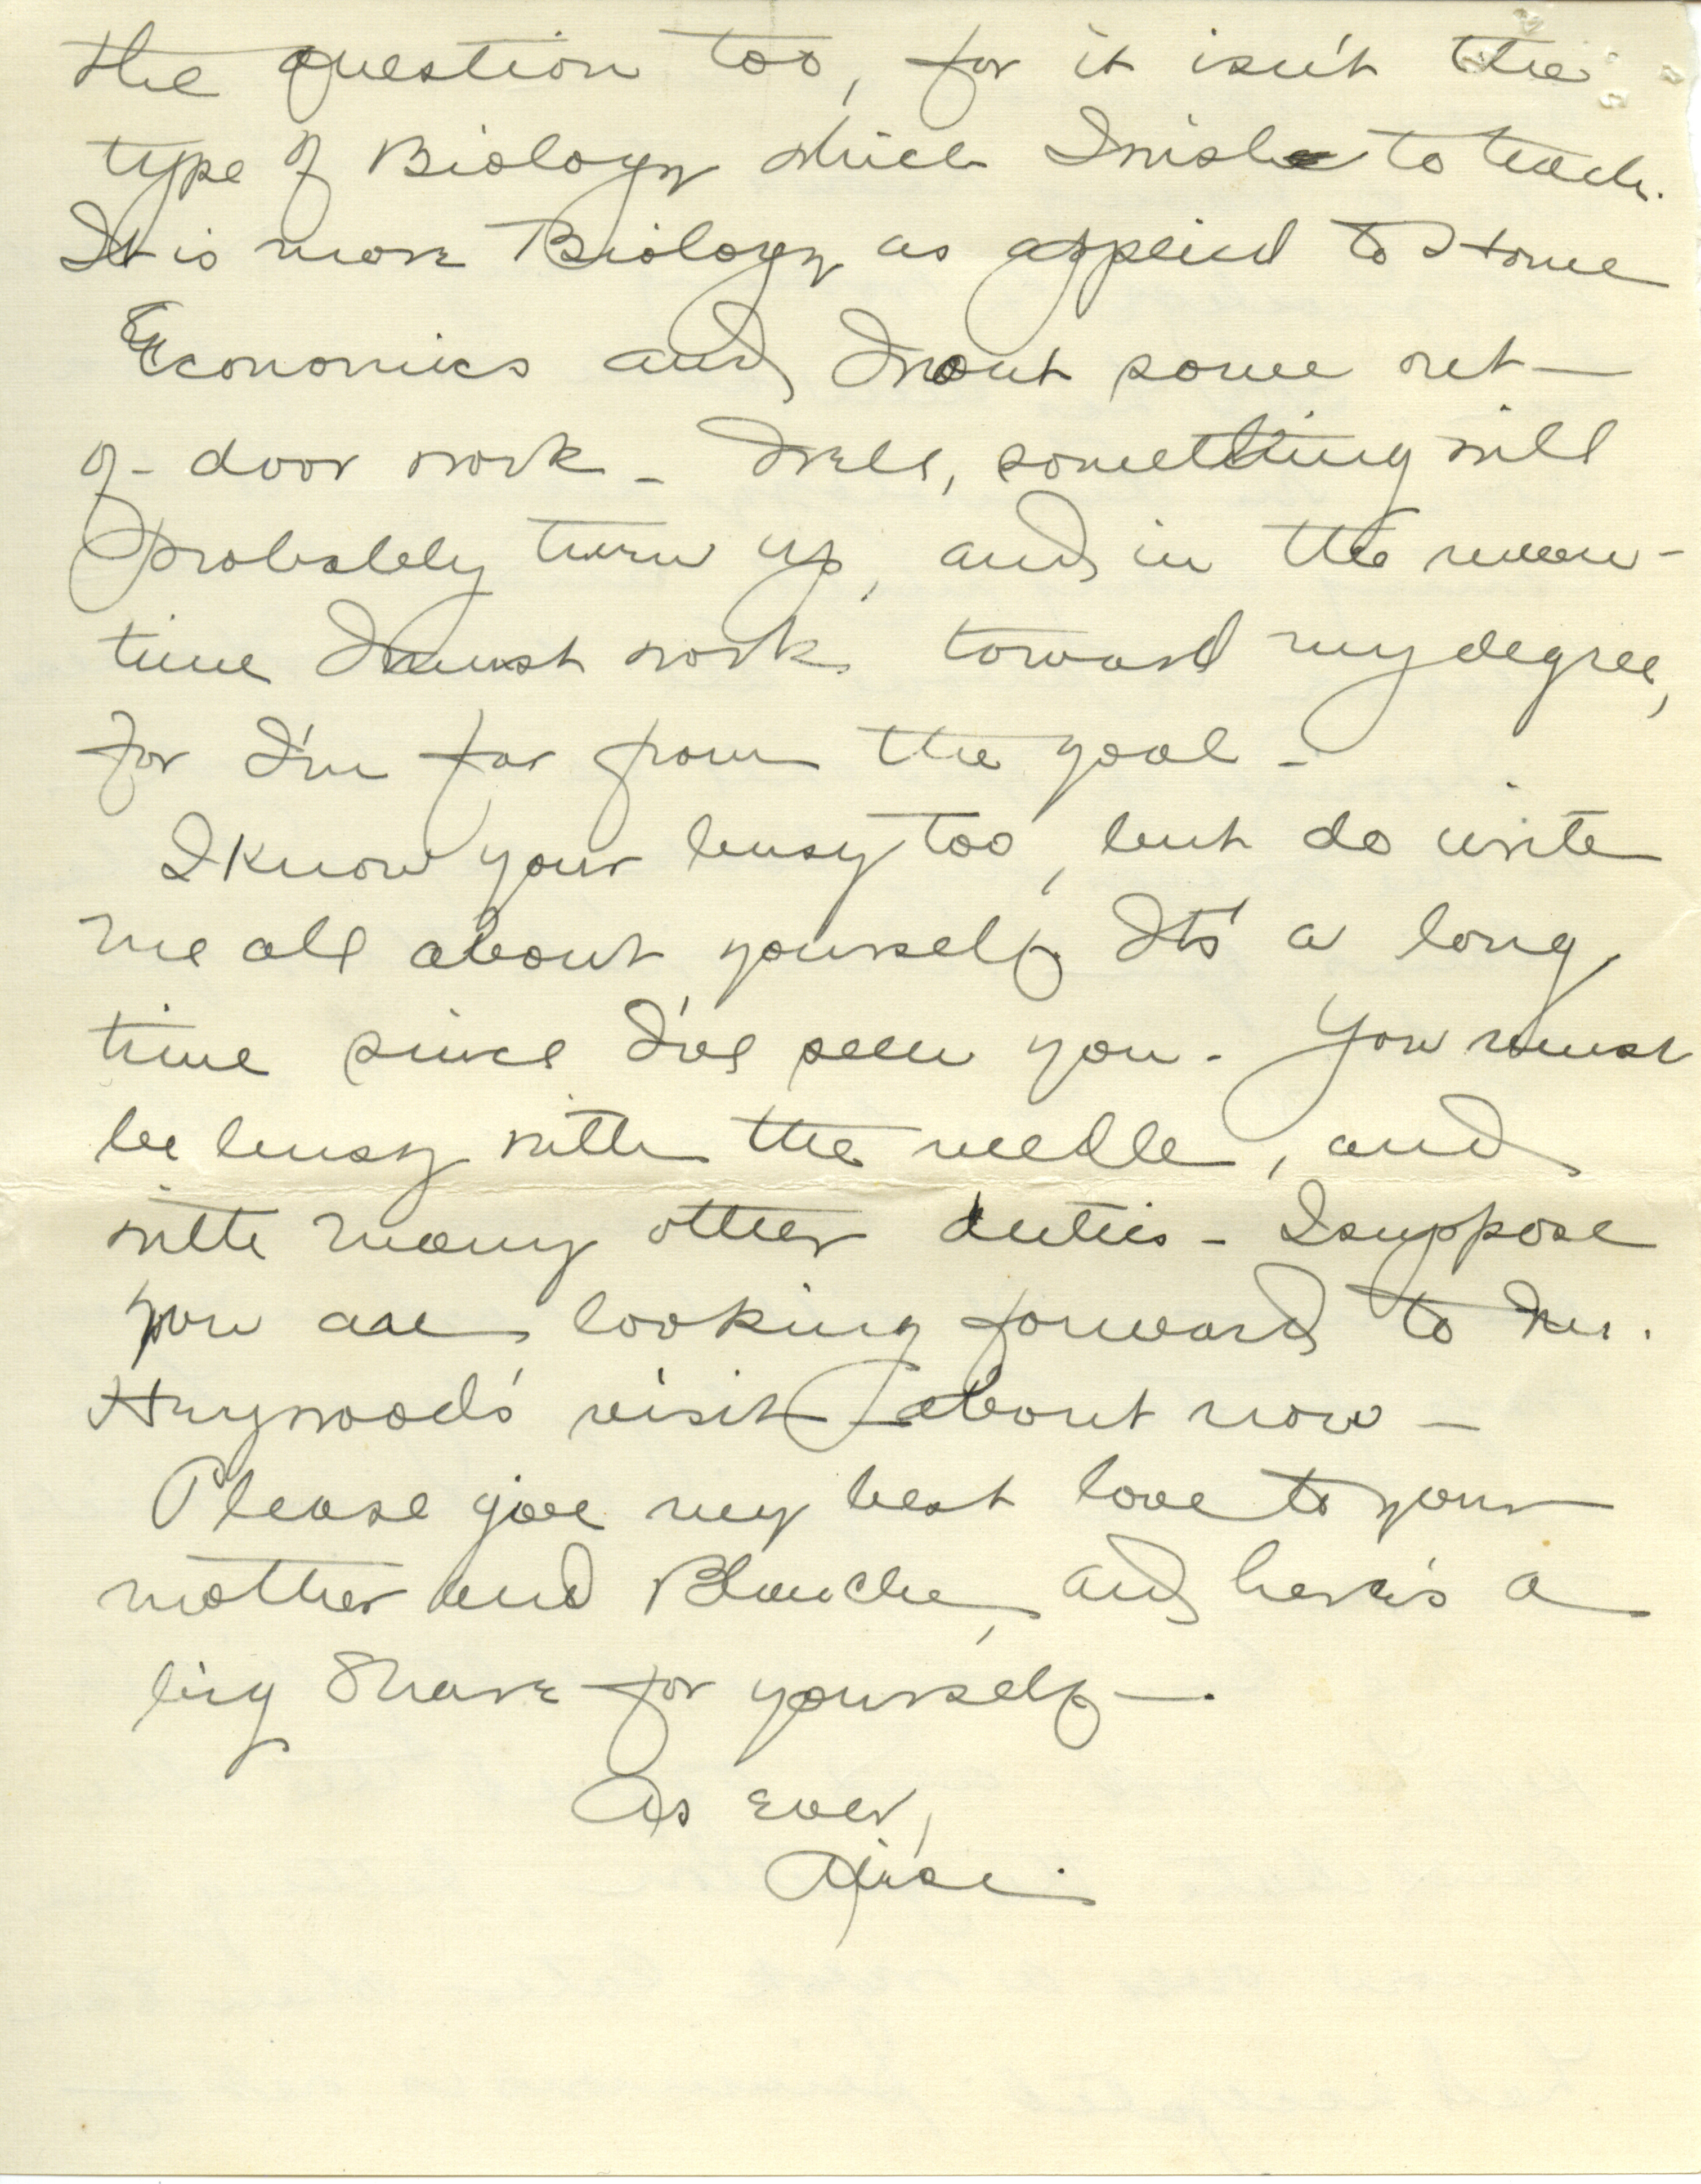 the question too, for it isn't the
type of Biology which I wish to teach.
It is more Biology as applied to Home
Economics and I want some out-
of-door work - Well, something will
probably turn up, and in the mean-
time I must work toward my degree,
for I'm far from the goal -
I know your busy too, but do write
me all about yourself. It's a long,
time since I've seen you - You must
be busy with the needle, and
with many other duties - I suppose
you are looking forward to Mr.
Heywood's visit about now -
Please give my best love to your
mother and Blanche, and here's a
big share for yourself -.
As ever,